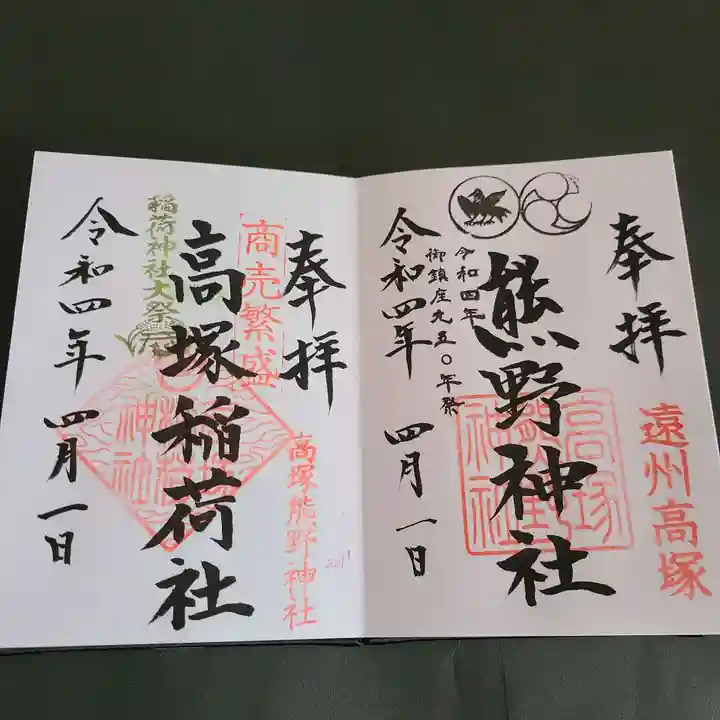 奉拝
遠州高塚
熊野神社
高塚熊野神社
令和四年
御鎮座九五〇年祭
令和四年 四月一日
奉拝
商売繁盛
高塚熊野神社
高塚稲荷社
稲荷神社大祭
令和四年 四月一日